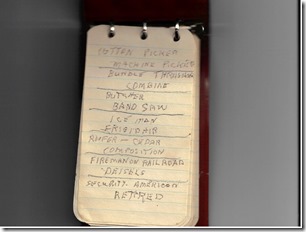 COTTEN PICKER
MACHINE PICKER
BUNDLE
COMBINE
BUTCHER
BAND SAW
ICE MAN
FRIGIDAIR
RUFER - CEDAR
COMPOSITION
FIREMAN ON RAILROAD
DEISELS
SECURITY AMERICAN
RETIRED